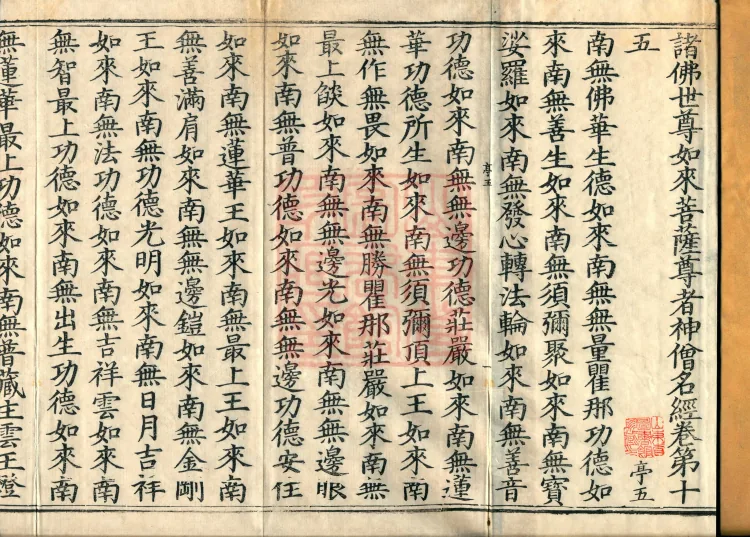 諸佛世尊如來菩薩尊者神僧名經卷第十
五
亭五
南無佛華生德如來南無無量瞿那功德如
來南無善生如來南無須彌聚如來南無寶
娑羅如來南無發心轉法輪如來南無善音
亭五
功德如來南無無邊功德莊嚴如來南無蓮
華功德所生如來南無須彌頂上王如來南
無作無畏如來南無勝瞿那莊嚴如來南無
最上燄如來南無無邊光如來南無無邊眼
如來南無普功德如來南無無邊功德安住
如來南無蓮華王如來南無最上王如來南
無善滿肩如來南無無邊鎧如來南無金剛
王如來南無功德光明如來南無日月吉祥
如來南無法功德如來南無吉祥雲如來南
無智最上功德如來南無出生功德如來南
無蓮華最上功德如來南無普藏生雲王燈